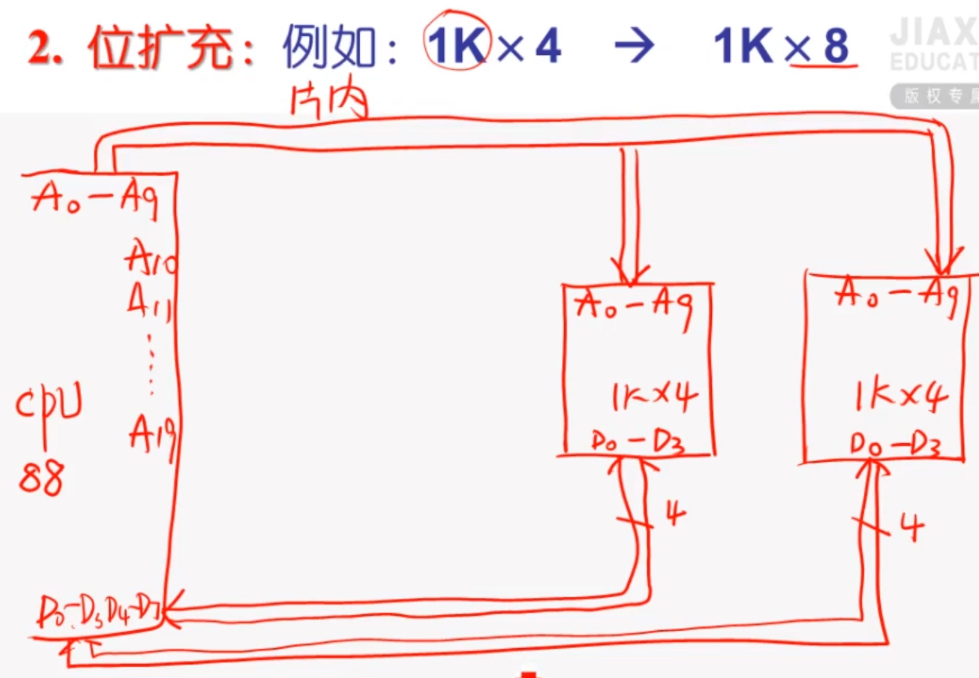 2. 位扩充：例如：1K×4 → 1K×8
JIAX
EDUCAT
版权专属
片内
A0-A9
A10
A11
A19
CPU
88
D0-D3 D4-D7
A0-A9
1K×4
D0-D3
4
A0-A9
1K×4
D0-D3
4